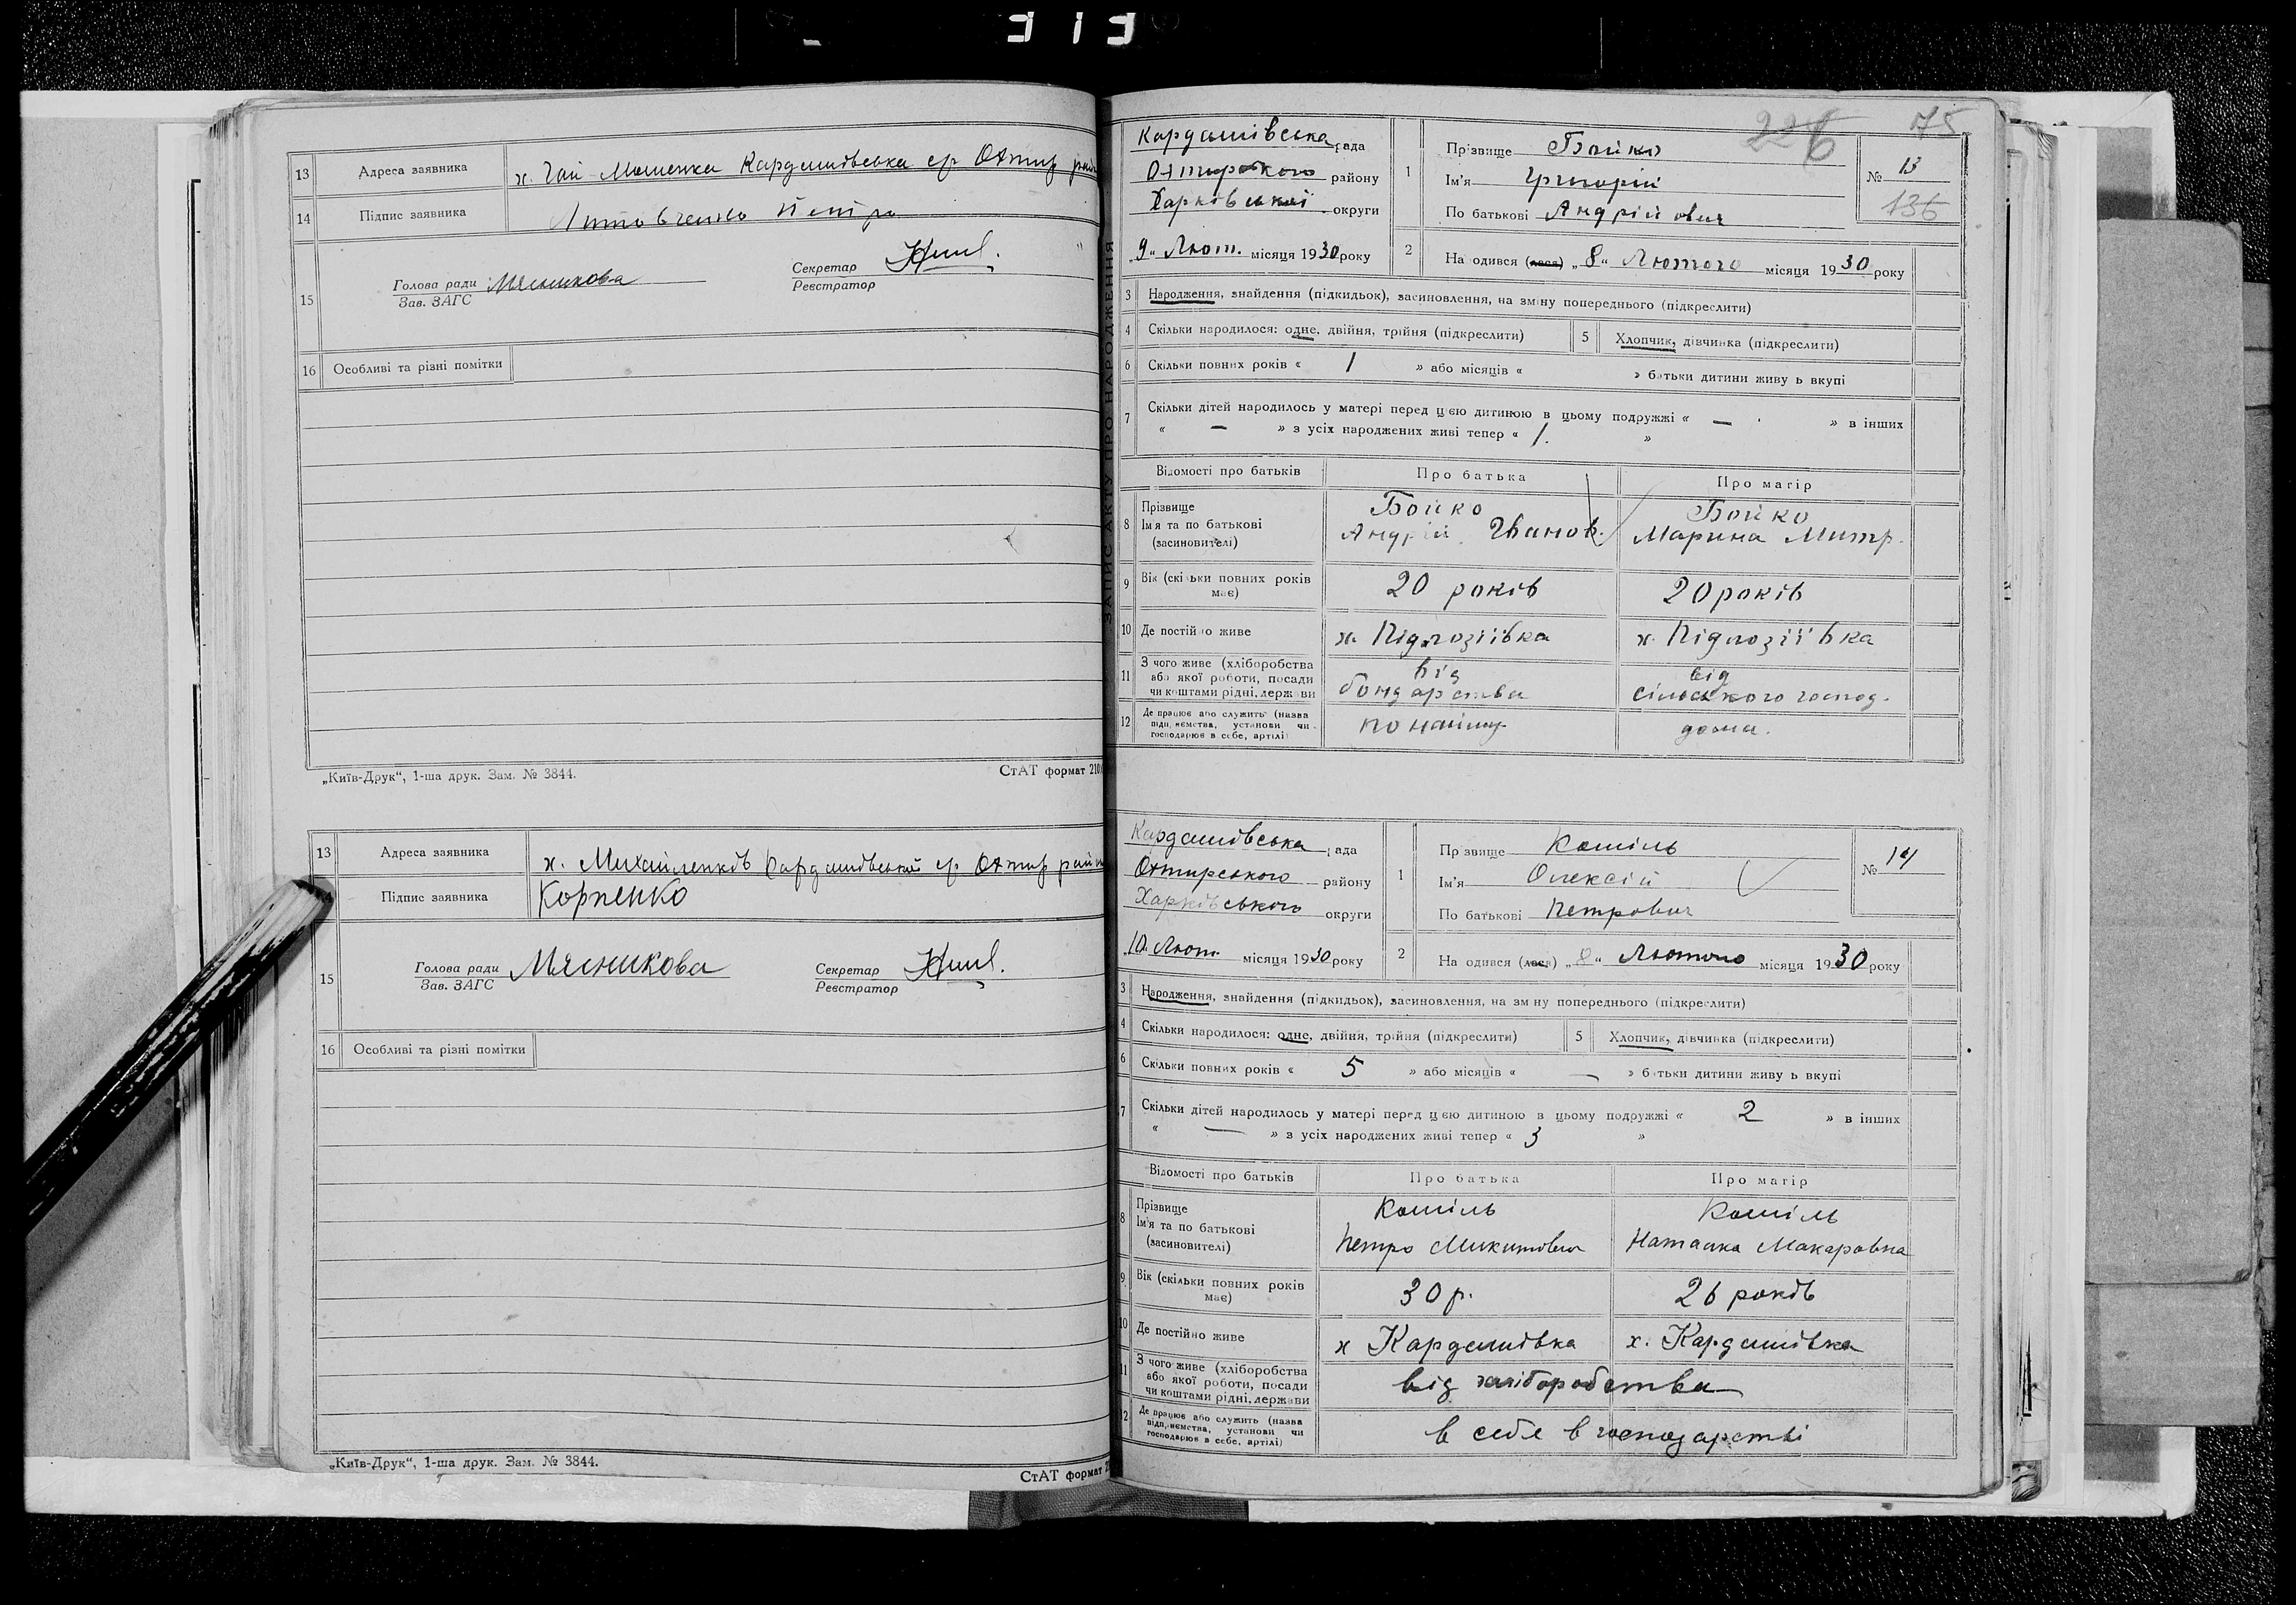 313
13 Адреса заявника х. Гай-Мошенка Кардашівська с/р Охтир рай
14 Підпис заявника Литовченко Петро
15 Голова ради Зав. ЗАГС Мясникова Секретар Реєстратор
16 Особливі та різні помітки
„Київ-Друк“, 1-ша друк. Зам. № 3844. СтАТ формат 210
13 Адреса заявника х. Михайленків Кардашівської с/р Охтир район
14 Підпис заявника Корненко
15 Голова ради Зав. ЗАГС Мясникова Секретар Реєстратор
16 Особливі та різні помітки
„Київ-Друк“, 1-ша друк. Зам. № 3844. СтАТ формат
ЗАПИС АКТУ ПРО НАРОДЖЕННЯ
226 75
Кардашівська рада
Охтирського району
Харківської округи
„9“ Лют. місяця 1930 року
1 Прізвище Бойко
Ім'я Григорій
По батькові Андрійович
№ 13
136
2 На одився (лася) „8“ Лютого місяця 1930 року
3 Народження, знайдення (підкидьок), засиновлення, на зміну попереднього (підкреслити)
4 Скільки народилося: одне, двійня, трійня (підкреслити) 5 Хлопчик, дівчинка (підкреслити)
6 Скільки повних років « 1 » або місяців « » батьки дитини живу ь вкупі
7 Скільки дітей народилось у матері перед цією дитиною в цьому подружжі « — » в інших
« — » з усіх народжених живі тепер « 1. »
Відомості про батьків Про батька Про матір
8 Прізвище Ім'я та по батькові (засиновителі) Бойко Андрій Іванов. Бойко Марина Митр.
9 Вік (скільки повних років має) 20 років 20 років
10 Де постійно живе х. Підлозіївка х. Підлозіївка
11 З чого живе (хліборобства або якої роботи, посади чи коштами рідні, держави від бондарства від сільського господ.
12 Де працює або служить (назва підприємства, установи чи господарює в себе, артілі) по найму дома.
Кардашівська рада
Охтирського району
Харківського округи
„10“ Лют. місяця 1930 року
1 Прізвище Кошіль
Ім'я Олексій
По батькові Петрович
№ 14
2 На одився (лася) „8“ Лютого місяця 1930 року
3 Народження, знайдення (підкидьок), засиновлення, на зміну попереднього (підкреслити)
4 Скільки народилося: одне, двійня, трійня (підкреслити) 5 Хлопчик, дівчинка (підкреслити)
6 Скільки повних років « 5 » або місяців « — » батьки дитини живу ь вкупі
7 Скільки дітей народилось у матері перед цією дитиною в цьому подружжі « 2 » в інших
« — » з усіх народжених живі тепер « 3 »
Відомості про батьків Про батька Про матір
8 Прізвище Ім'я та по батькові (засиновителі) Кошіль Петро Микитович Кошіль Наталка Макаровна
9 Вік (скільки повних років має) 30 р. 26 років
10 Де постійно живе х Кардашівка х. Кардашівка
11 З чого живе (хліборобства або якої роботи, посади чи коштами рідні, держави від хліборобства
12 Де працює або служить (назва підприємства, установи чи господарює в себе, артілі) в себе в господарстві